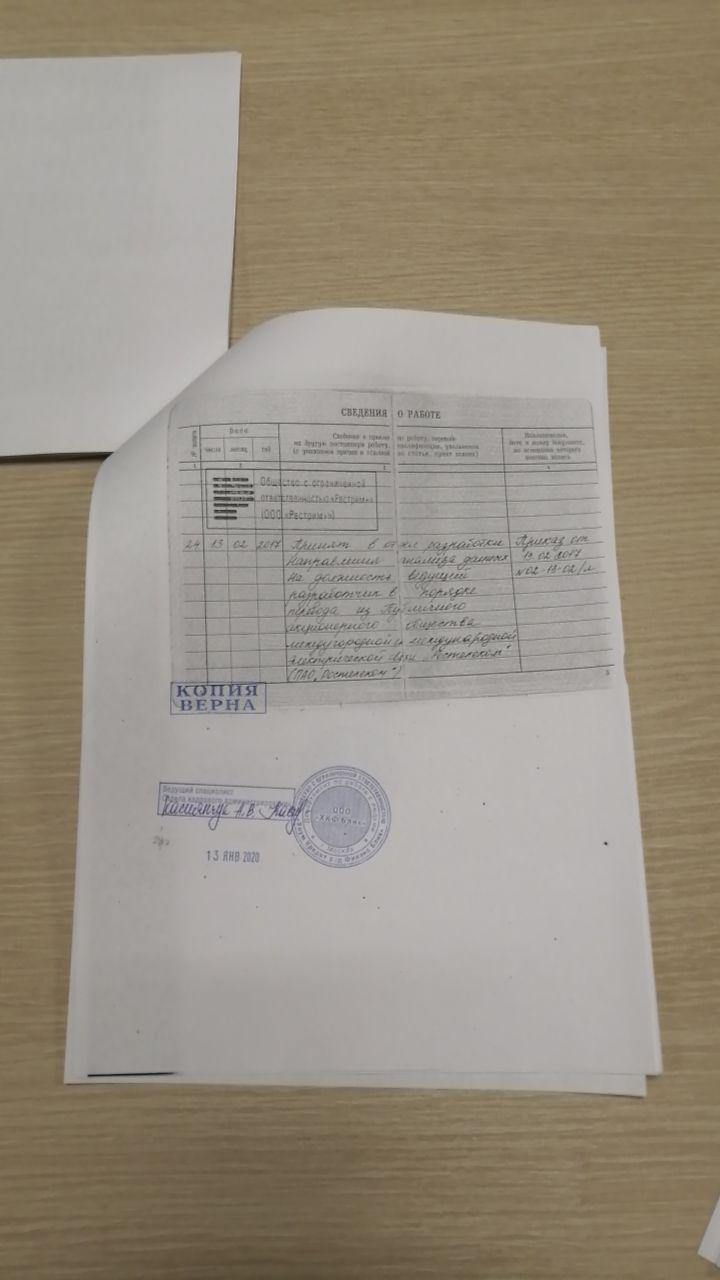 СВЕДЕНИЯ О РАБОТЕ
№ записи
Дата
число месяц год
Сведения о приеме на работу, переводе
на другую постоянную работу, квалификации, увольнении
(с указанием причин и ссылкой на статью, пункт закона)
Наименование,
дата и номер документа,
на основании которого
внесена запись
1 2 3 4
Общество с ограниченной
ответственностью «Рестрим»
(ООО «Рестрим»)
24 13 02 2017 Принят в отдел разработки Приказ от
Направления анализа данных 13.02.2017
на должность ведущий №02-13-02/л
разработчик в порядке
перевода из Публичного
акционерного общества
междугородной и международной
электрической связи "Ростелеком"
(ПАО "Ростелеком")
КОПИЯ
ВЕРНА
Ведущий специалист
Отдела кадрового
А.В.
ООО
«ХКФ Банк»
Москва
13 ЯНВ 2020